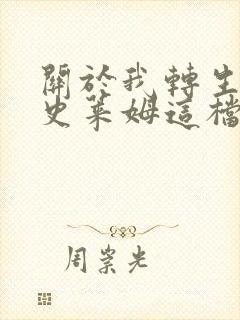 關於我轉生
史萊姆這檔
周崇光